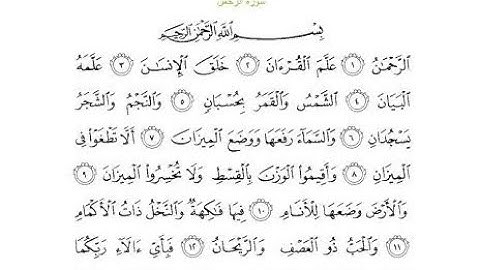 سورة الرحمن
بِسْمِ ٱللَّهِ ٱلرَّحْمَٰنِ ٱلرَّحِيمِ
ٱلرَّحْمَٰنُ ١ عَلَّمَ ٱلْقُرْءَانَ ٢ خَلَقَ ٱلْإِنسَٰنَ ٣ عَلَّمَهُ
ٱلْبَيَانَ ٤ ٱلشَّمْسُ وَٱلْقَمَرُ بِحُسْبَانٍ ٥ وَٱلنَّجْمُ وَٱلشَّجَرُ
يَسْجُدَانِ ٦ وَٱلسَّمَآءَ رَفَعَهَا وَوَضَعَ ٱلْمِيزَانَ ٧ أَلَّا تَطْغَوْا۟ فِى
ٱلْمِيزَانِ ٨ وَأَقِيمُوا۟ ٱلْوَزْنَ بِٱلْقِسْطِ وَلَا تُخْسِرُوا۟ ٱلْمِيزَانَ ٩
وَٱلْأَرْضَ وَضَعَهَا لِلْأَنَامِ ١٠ فِيهَا فَٰكِهَةٌ وَٱلنَّخْلُ ذَاتُ ٱلْأَكْمَامِ
١١ وَٱلْحَبُّ ذُو ٱلْعَصْفِ وَٱلرَّيْحَانُ ١٢ فَبِأَىِّ ءَالَآءِ رَبِّكُمَا